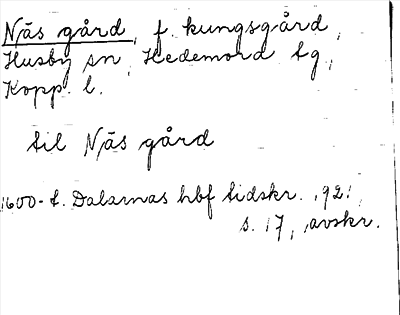 Näs gård, f. kungsgård,
Husby sn, Hedemora tg,
Kopp. l.
till Näs gård
1600-t. Dalarnas hbf tidskr. 1921,
s. 17, avskr.